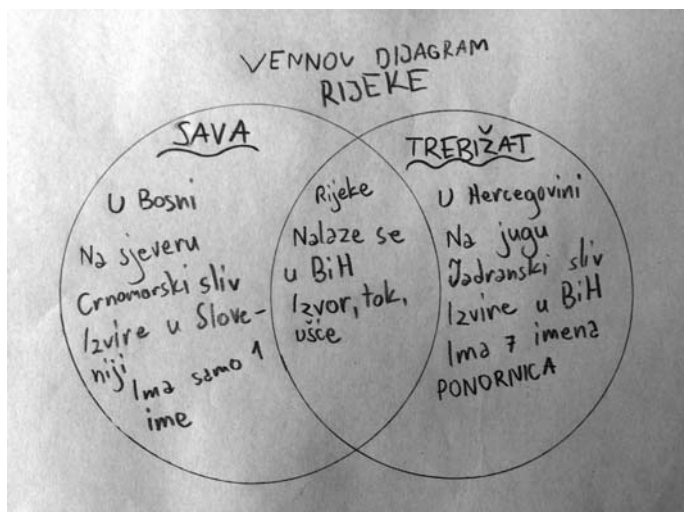 VENNOV DIJAGRAM
RIJEKE
SAVA
U Bosni
Na sjeveru
Crnomorski sliv
Izvire u Slove-
niji
Ima samo 1
ime
Rijeke
Nalaze se
u BiH
Izvor, tok,
ušće
TREBIŽAT
U Hercegovini
Na jugu
Jadranski sliv
Izvire u BiH
Ima 7 imena
PONORNICA